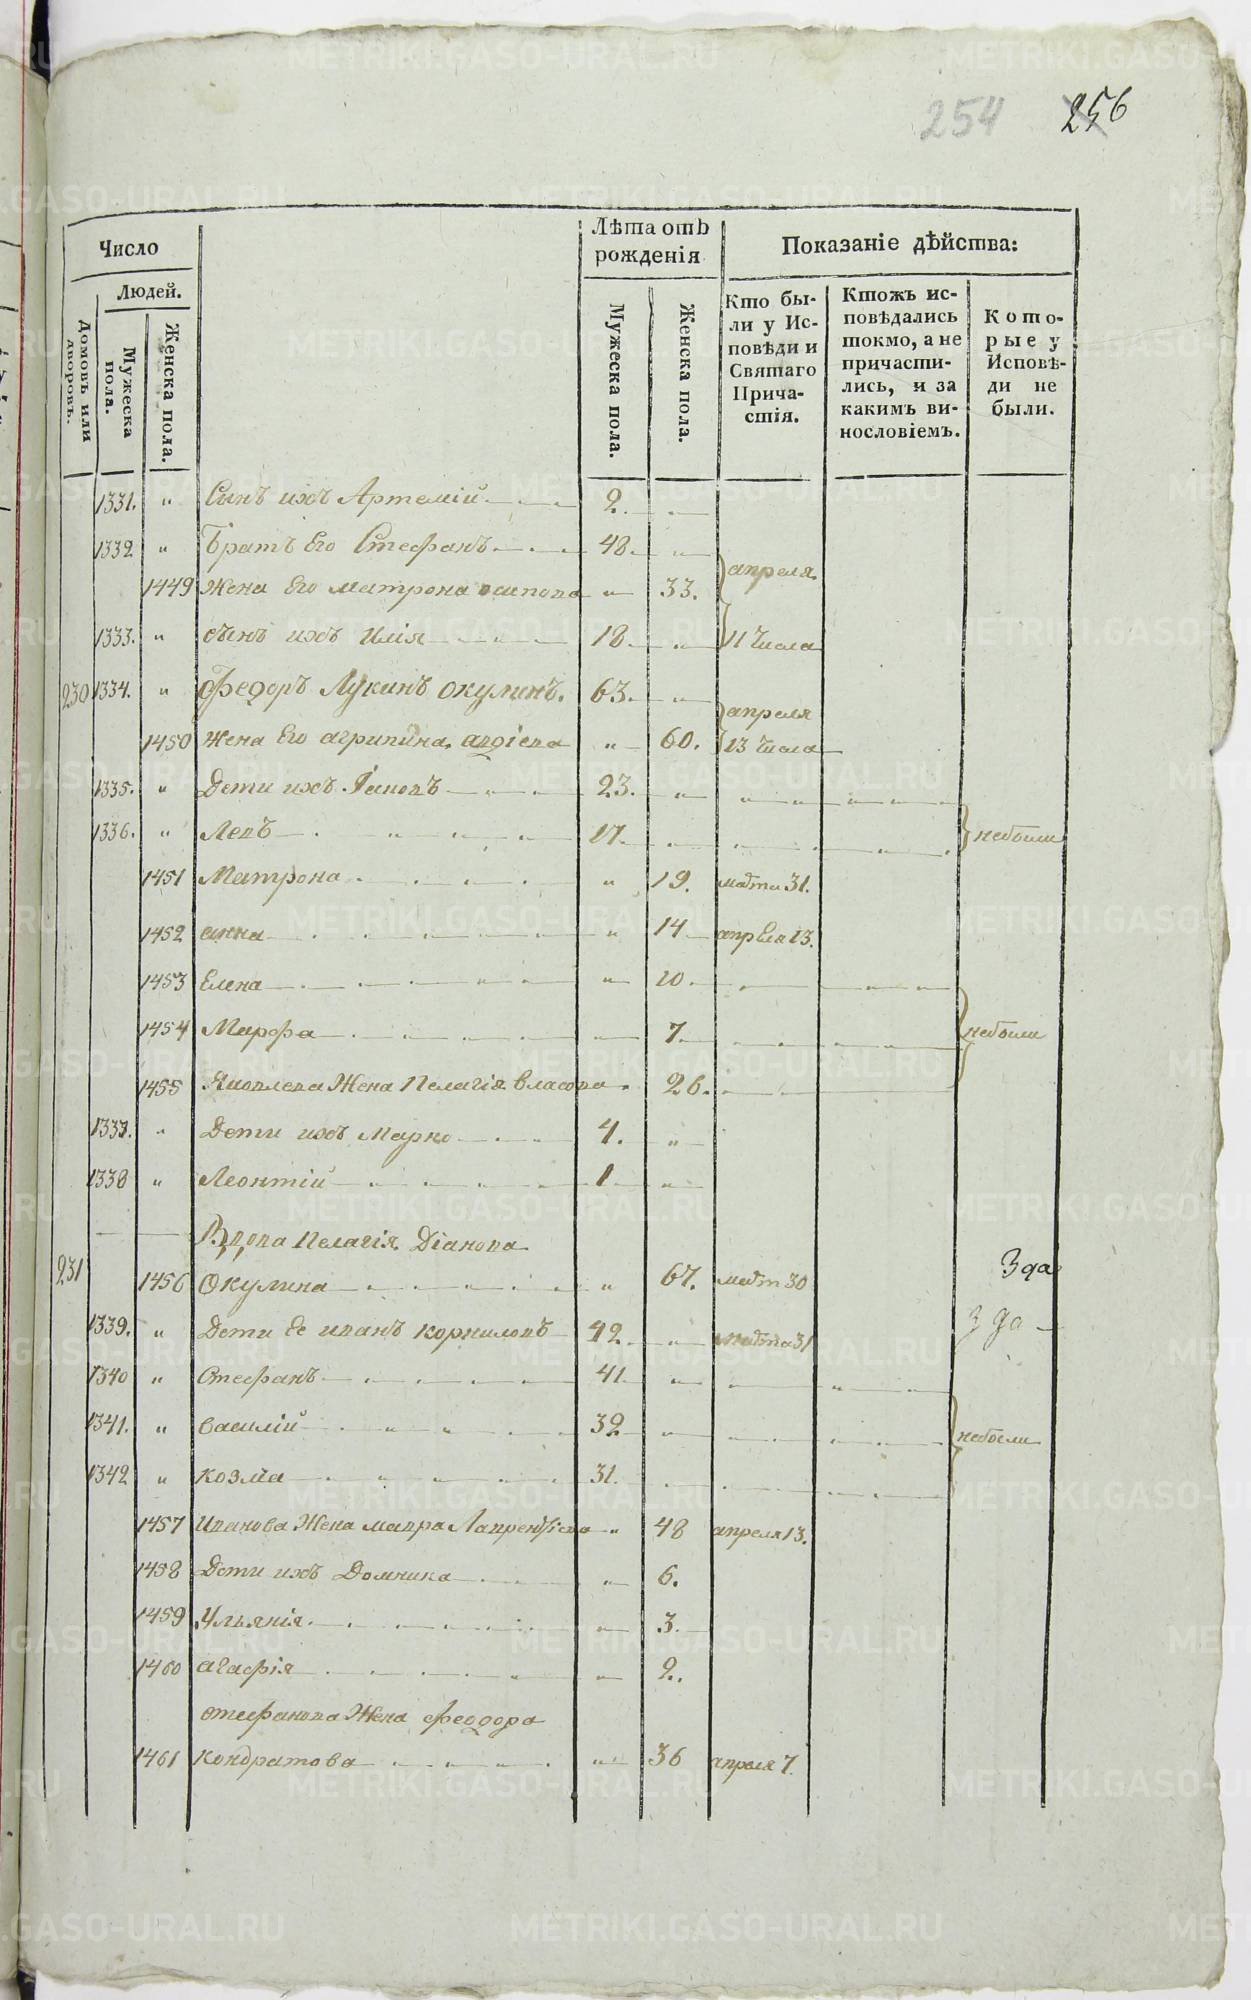 254 256
Число
Людей.
Домовъ или дворовъ.
Мужеска пола.
Женска пола.
Лѣта отъ рожденія
Мужеска пола.
Женска пола.
Показаніе дѣйства:
Кто бы-
ли у Ис-
повѣди и
Святаго
Прича-
стія.
Ктожъ ис-
повѣдались
токмо, а не
причасти-
лись, и за
какимъ ви-
нословіемъ.
Кото-
рые у
Исповѣ-
ди не
были.
1331. " Сынъ ихъ Артемій 2. "
1332 " Братъ Его Стефанъ 48. "
апреля
1449 Жена Его матрона осипова " 33.
1333. " сынъ ихъ Илія 18. " 11 Числа
230 1334. " Федоръ Лукинъ окулинъ. 63. "
апреля
1450 Жена Его агрипина " 60. 13 Числа
1335. " Дети ихъ 23. "
1336. " Левъ 17. небыли
1451 Матрона " 19. марта 31.
1452 анна " 14 апреля 13.
1453 Елена " 10.
1454 Марфа 7. небыли
1455 Яковлева Жена Пелагія власова 26.
1337. " Дети ихъ Марко 4. "
1338 " Леонтій 1 "
Вдова Пелагія Діанова
231 1456 Окулина " 67. марта 30 3 да
1339. " Дети Ее иванъ корниловъ 42 " марта 31 3 да
1340 " Стефанъ 41. "
1341. " василій 32 " небыли
1342 " козма 31.
1457 Иванова Жена мавра Лаврентіева " 48 апреля 13.
1458 Дети ихъ Домника " 6.
1459 Ульянія " 3.
1460 агафія " 2.
стефанова Жена феодора
1461 кондратова " 36 апреля 7.
METRIKI.GASO-URAL.RU